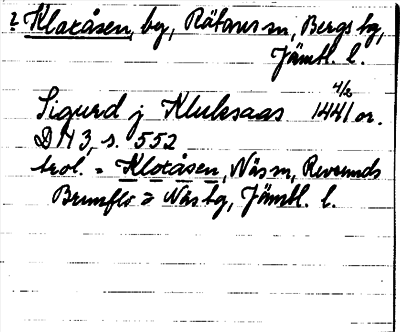 ? Klaxåsen, by, Rätans sn, Bergs tg,
Jämtl. l.
Sigurd j Kluksaas 1441 4/2 or.
DN 3, s. 552
trol. = Kloxåsen, Näs sn, Revsunds
Brunflo o Näs tg, Jämtl. l.